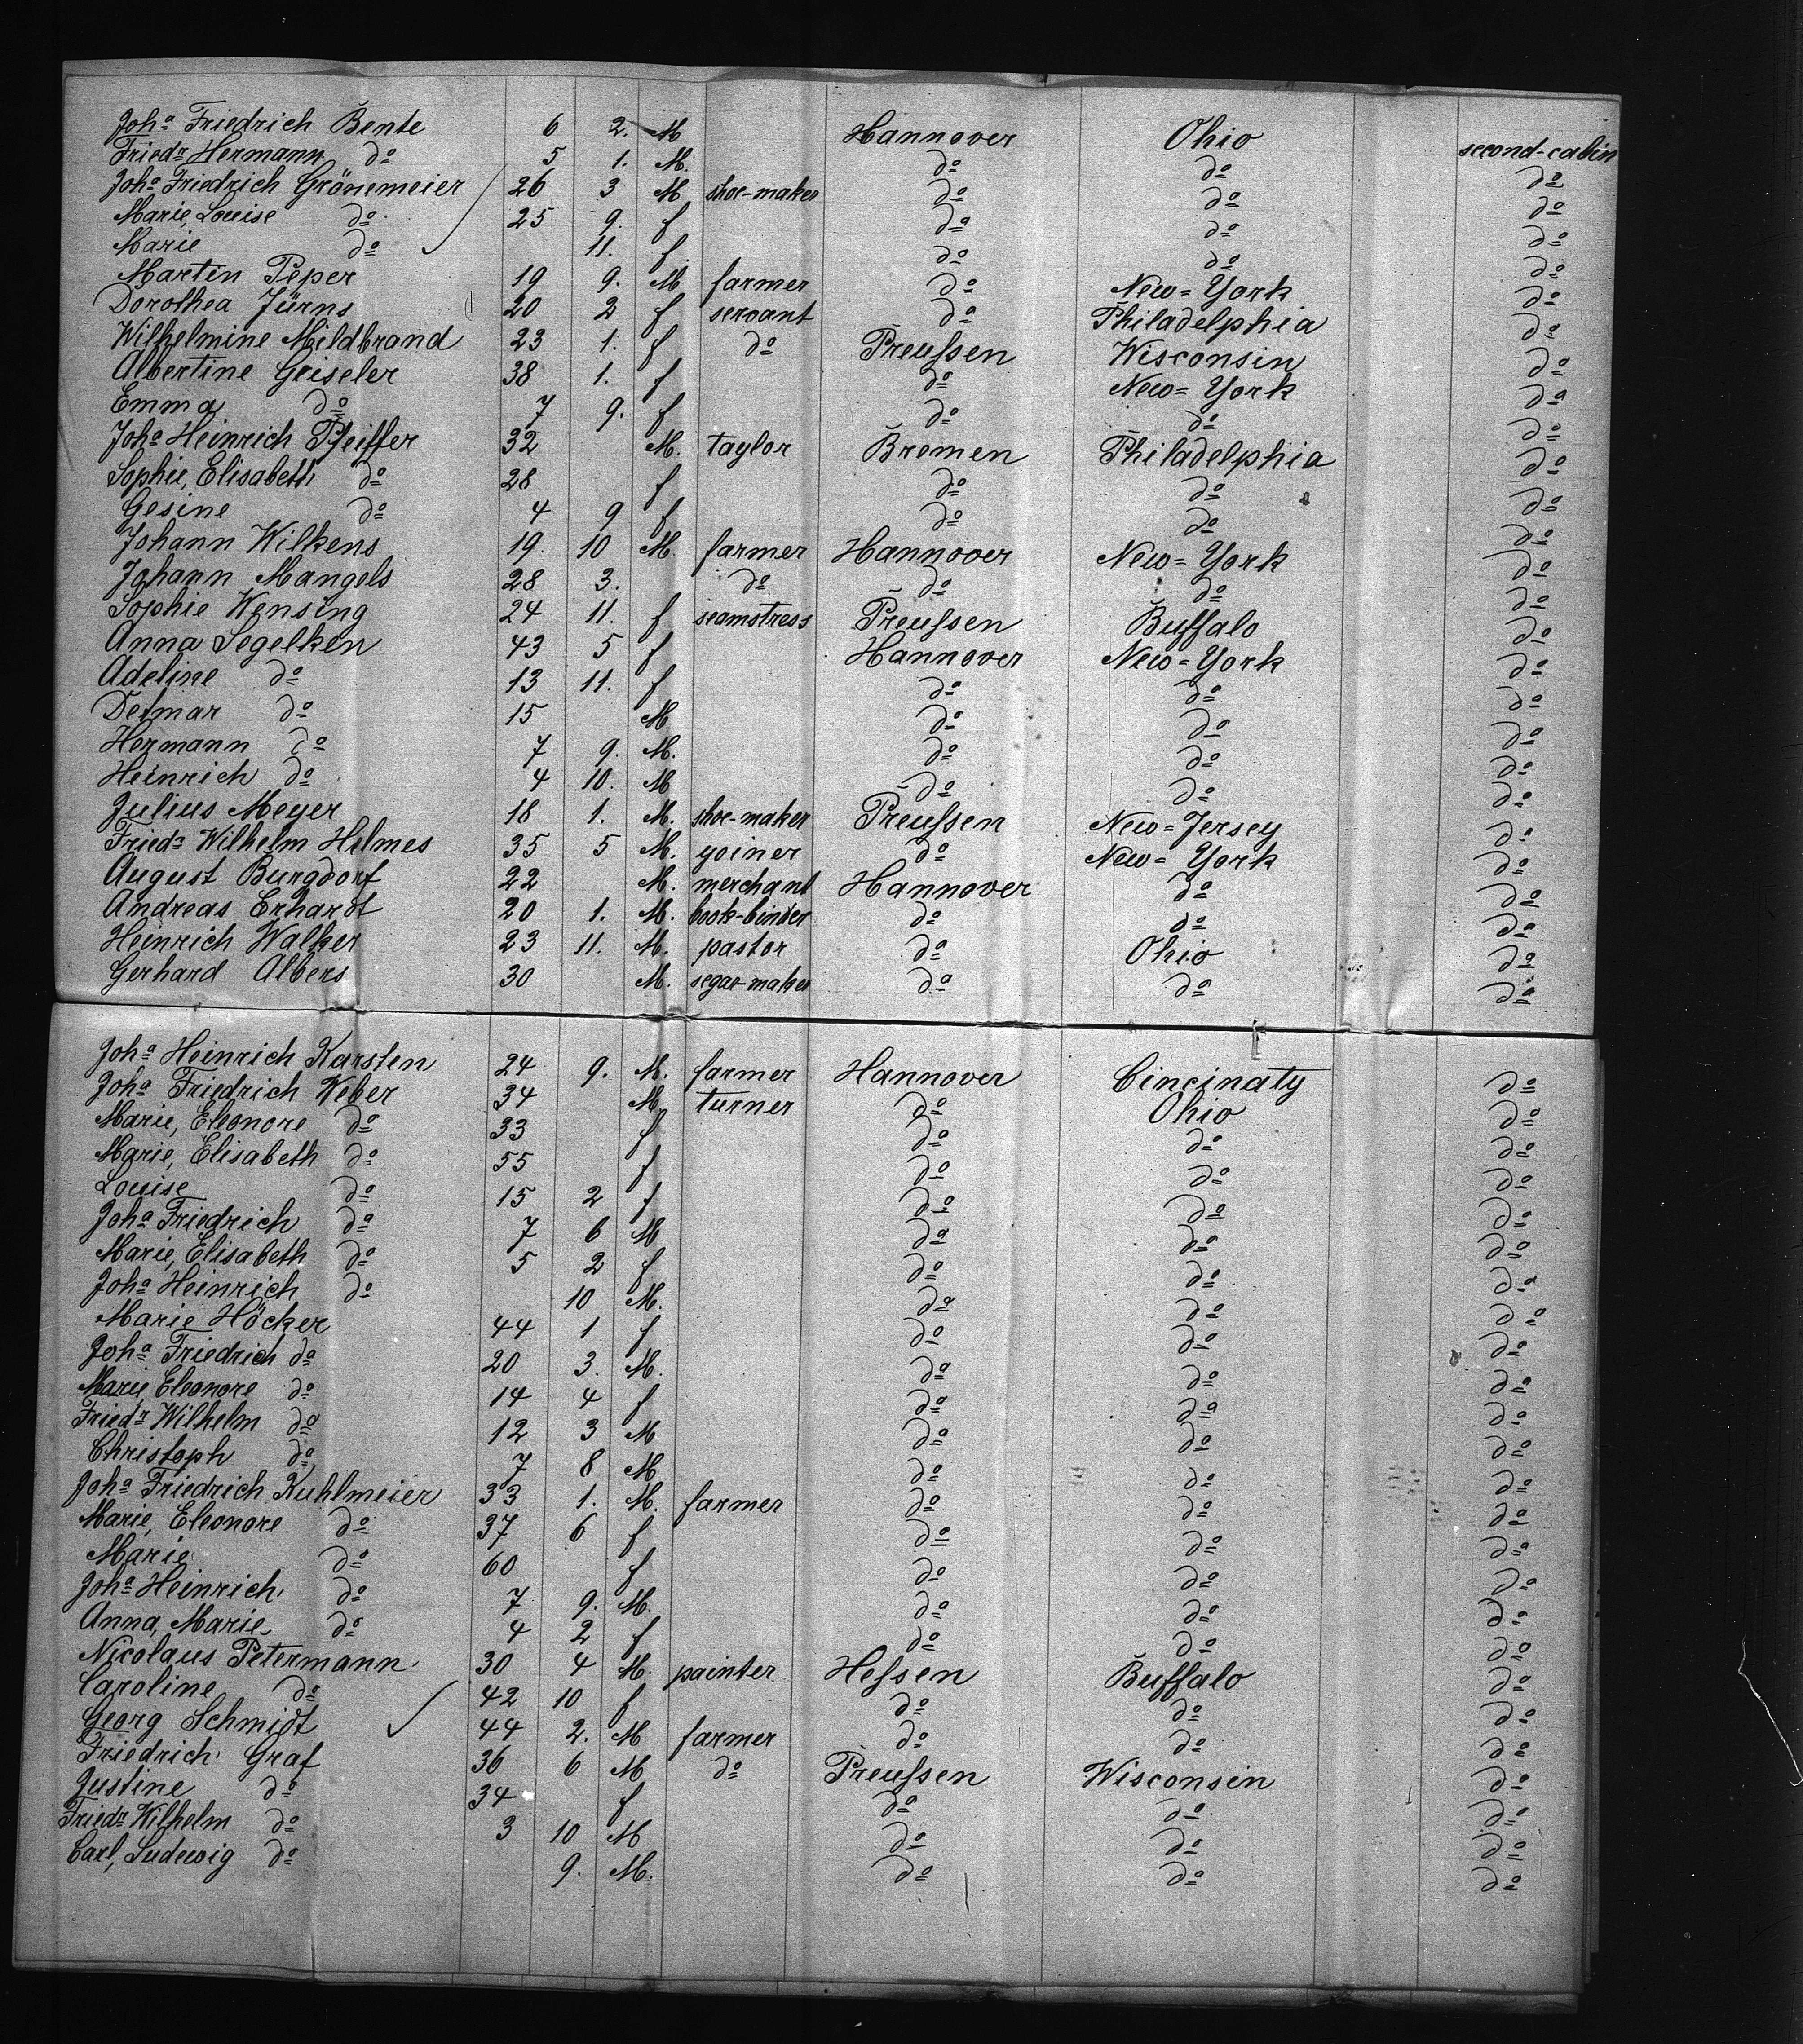 Joha Friedrich Bente 6 2. M Hannover Ohio second-cabin
Friedr Hermann do 5 1. M. do do do
Joha Friedrich Grönemeier 26 3 M shoe-maker do do do
Marie, Louise do 25 9. f do do do
Marie do 11. f do do do
Martin Peper 19 9. M farmer do New-York do
Dorothea Jürns 20 2 f servant do Philadelphia do
Wilhelmine Mildbrand 23 1. f do Preußen Wisconsin do
Albertine Geiseler 38 1. f do New-York do
Emma do 7 9. f do do do
Joha Heinrich Pfeiffer 32 M. taylor Bremen Philadelphia do
Sophie, Elisabeth do 28 f do do do
Gesine do 4 9 f do do do
Johann Wilkens 19. 10 M. farmer Hannover New-York do
Johann Mangels 28 3. do do do do
Sophie Wensing 24 11. f seamstress Preußen Buffalo do
Anna Segelken 43 5 f Hannover New-York do
Adeline do 13 11. f do do do
Detmar do 15 M do do do
Hermann do 7 9. M. do do do
Heinrich do 4 10. M do do do
Julius Meyer 18 1. M. shoe-maker Preußen New-Jersey do
Friedr Wilhelm Helmes 35 5 M. yoiner do New-York do
August Burgdorf 22 M. merchant Hannover do do
Andreas Erhardt 20 1. M. book-binder do do do
Heinrich Walker 23 11. M. pastor do Ohio do
Gerhard Albers 30 M. segar-maker do do do
Joha Heinrich Karsten 24 9. M. farmer Hannover Cincinaty do
Joha Friedrich Weber 34 M. turner do Ohio do
Marie, Eleonore do 33 f do do do
Marie, Elisabeth do 55 f do do do
Louise do 15 2 f do do do
Joha Friedrich do 7 6 M do do do
Marie, Elisabeth do 5 2 f do do do
Joha Heinrich do 10 M. do do do
Marie Höcker 44 1 f do do do
Joha Friedrich do 20 3. M. do do do
Marie Eleonore do 14 4 f do do do
Friedr Wilhelm do 12 3 M do do do
Christoph do 7 8 M do do do
Joha Friedrich Kuhlmeier 33 1. M. farmer do do do
Marie, Eleonore do 37 6 f do do do
Marie do 60 f do do do
Joha Heinrich do 7 9. M. do do do
Anna, Marie do 4 2 f do do do
Nicolaus Petermann 30 4 M. painter Heßen Buffalo do
Caroline do 42 10 f do do do
Georg Schmidt 44 2. M farmer do do do
Friedrich Graf 36 6 M do Preußen Wisconsin do
Justine do 34 f do do do
Friedr Wilhelm do 3 10 M do do do
Carl, Ludewig do 9. M. do do do